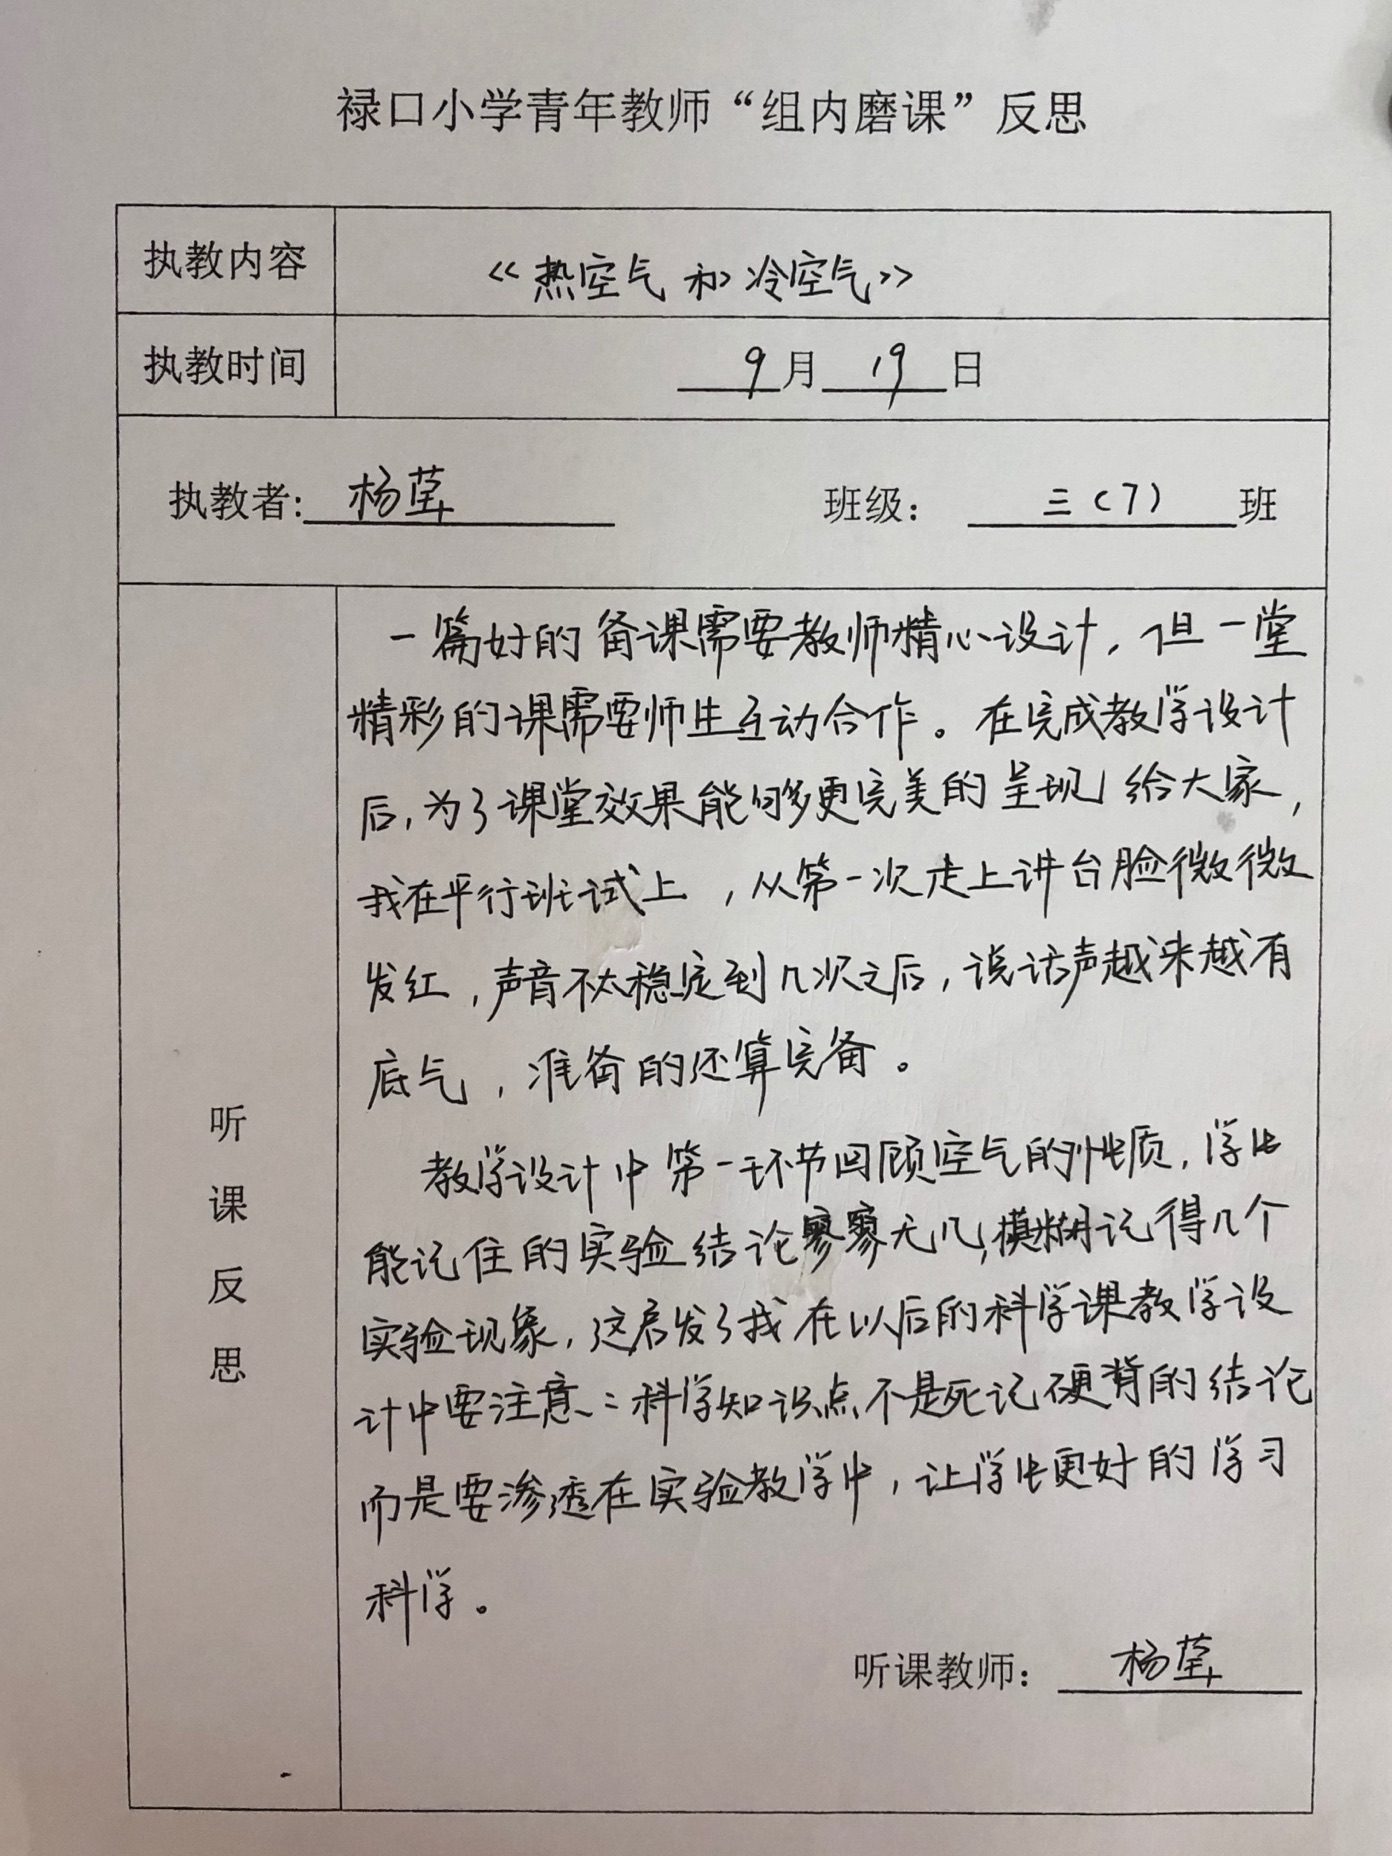 禄口小学青年教师“组内磨课”反思
执教内容
《热空气和冷空气》
执教时间
9月19日
执教者: 杨莹 班级： 三（7）班
听课反思
一篇好的备课需要教师精心设计，但一堂
精彩的课需要师生互动合作。在完成教学设计
后，为了课堂效果能够更完美的呈现给大家，
我在平行班试上，从第一次走上讲台脸微微
发红，声音不太稳定到几次之后，说话声越来越有
底气，准备的还算完备。
教学设计中第一环节回顾空气的性质，学生
能记住的实验结论寥寥无几，模糊记得几个
实验现象，这启发了我在以后的科学课教学设
计中要注意：科学知识点不是死记硬背的结论
而是要渗透在实验教学中，让学生更好的学习
科学。
听课教师： 杨莹